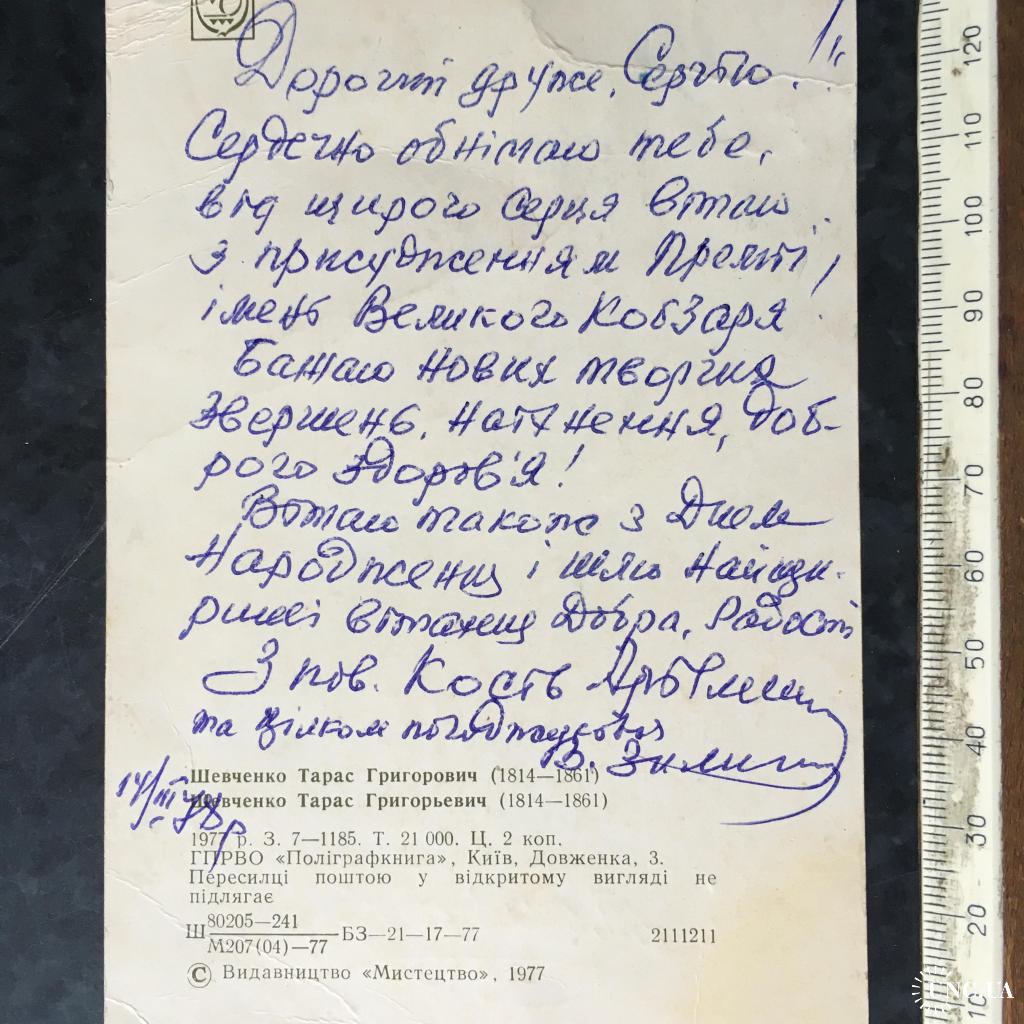 Дорогий друже, Сергію!
Сердечно обнімаю тебе,
від щирого серця вітаю
з присудженням Премії
імені Великого Кобзаря!
Бажаю нових творчих
звершень, натхнення, доб-
рого здоров'я!
Вітаю також з Днем
Народження і шлю найщи-
ріші вітання, Добра, Радості
З пов. Кость
та цілком погоджуюсь
В.
14/III 78р
Шевченко Тарас Григорович (1814—1861)
Шевченко Тарас Григорьевич (1814—1861)
1977 р. З. 7—1185. Т. 21 000. Ц. 2 коп.
ГПРВО «Поліграфкнига», Київ, Довженка, 3.
Пересилці поштою у відкритому вигляді не
підлягає
Ш 80205—241
М207(04)—77 БЗ—21—17—77 2111211
© Видавництво «Мистецтво», 1977
120
110
100
90
80
70
60
50
40
30
20
10
UNC.UA